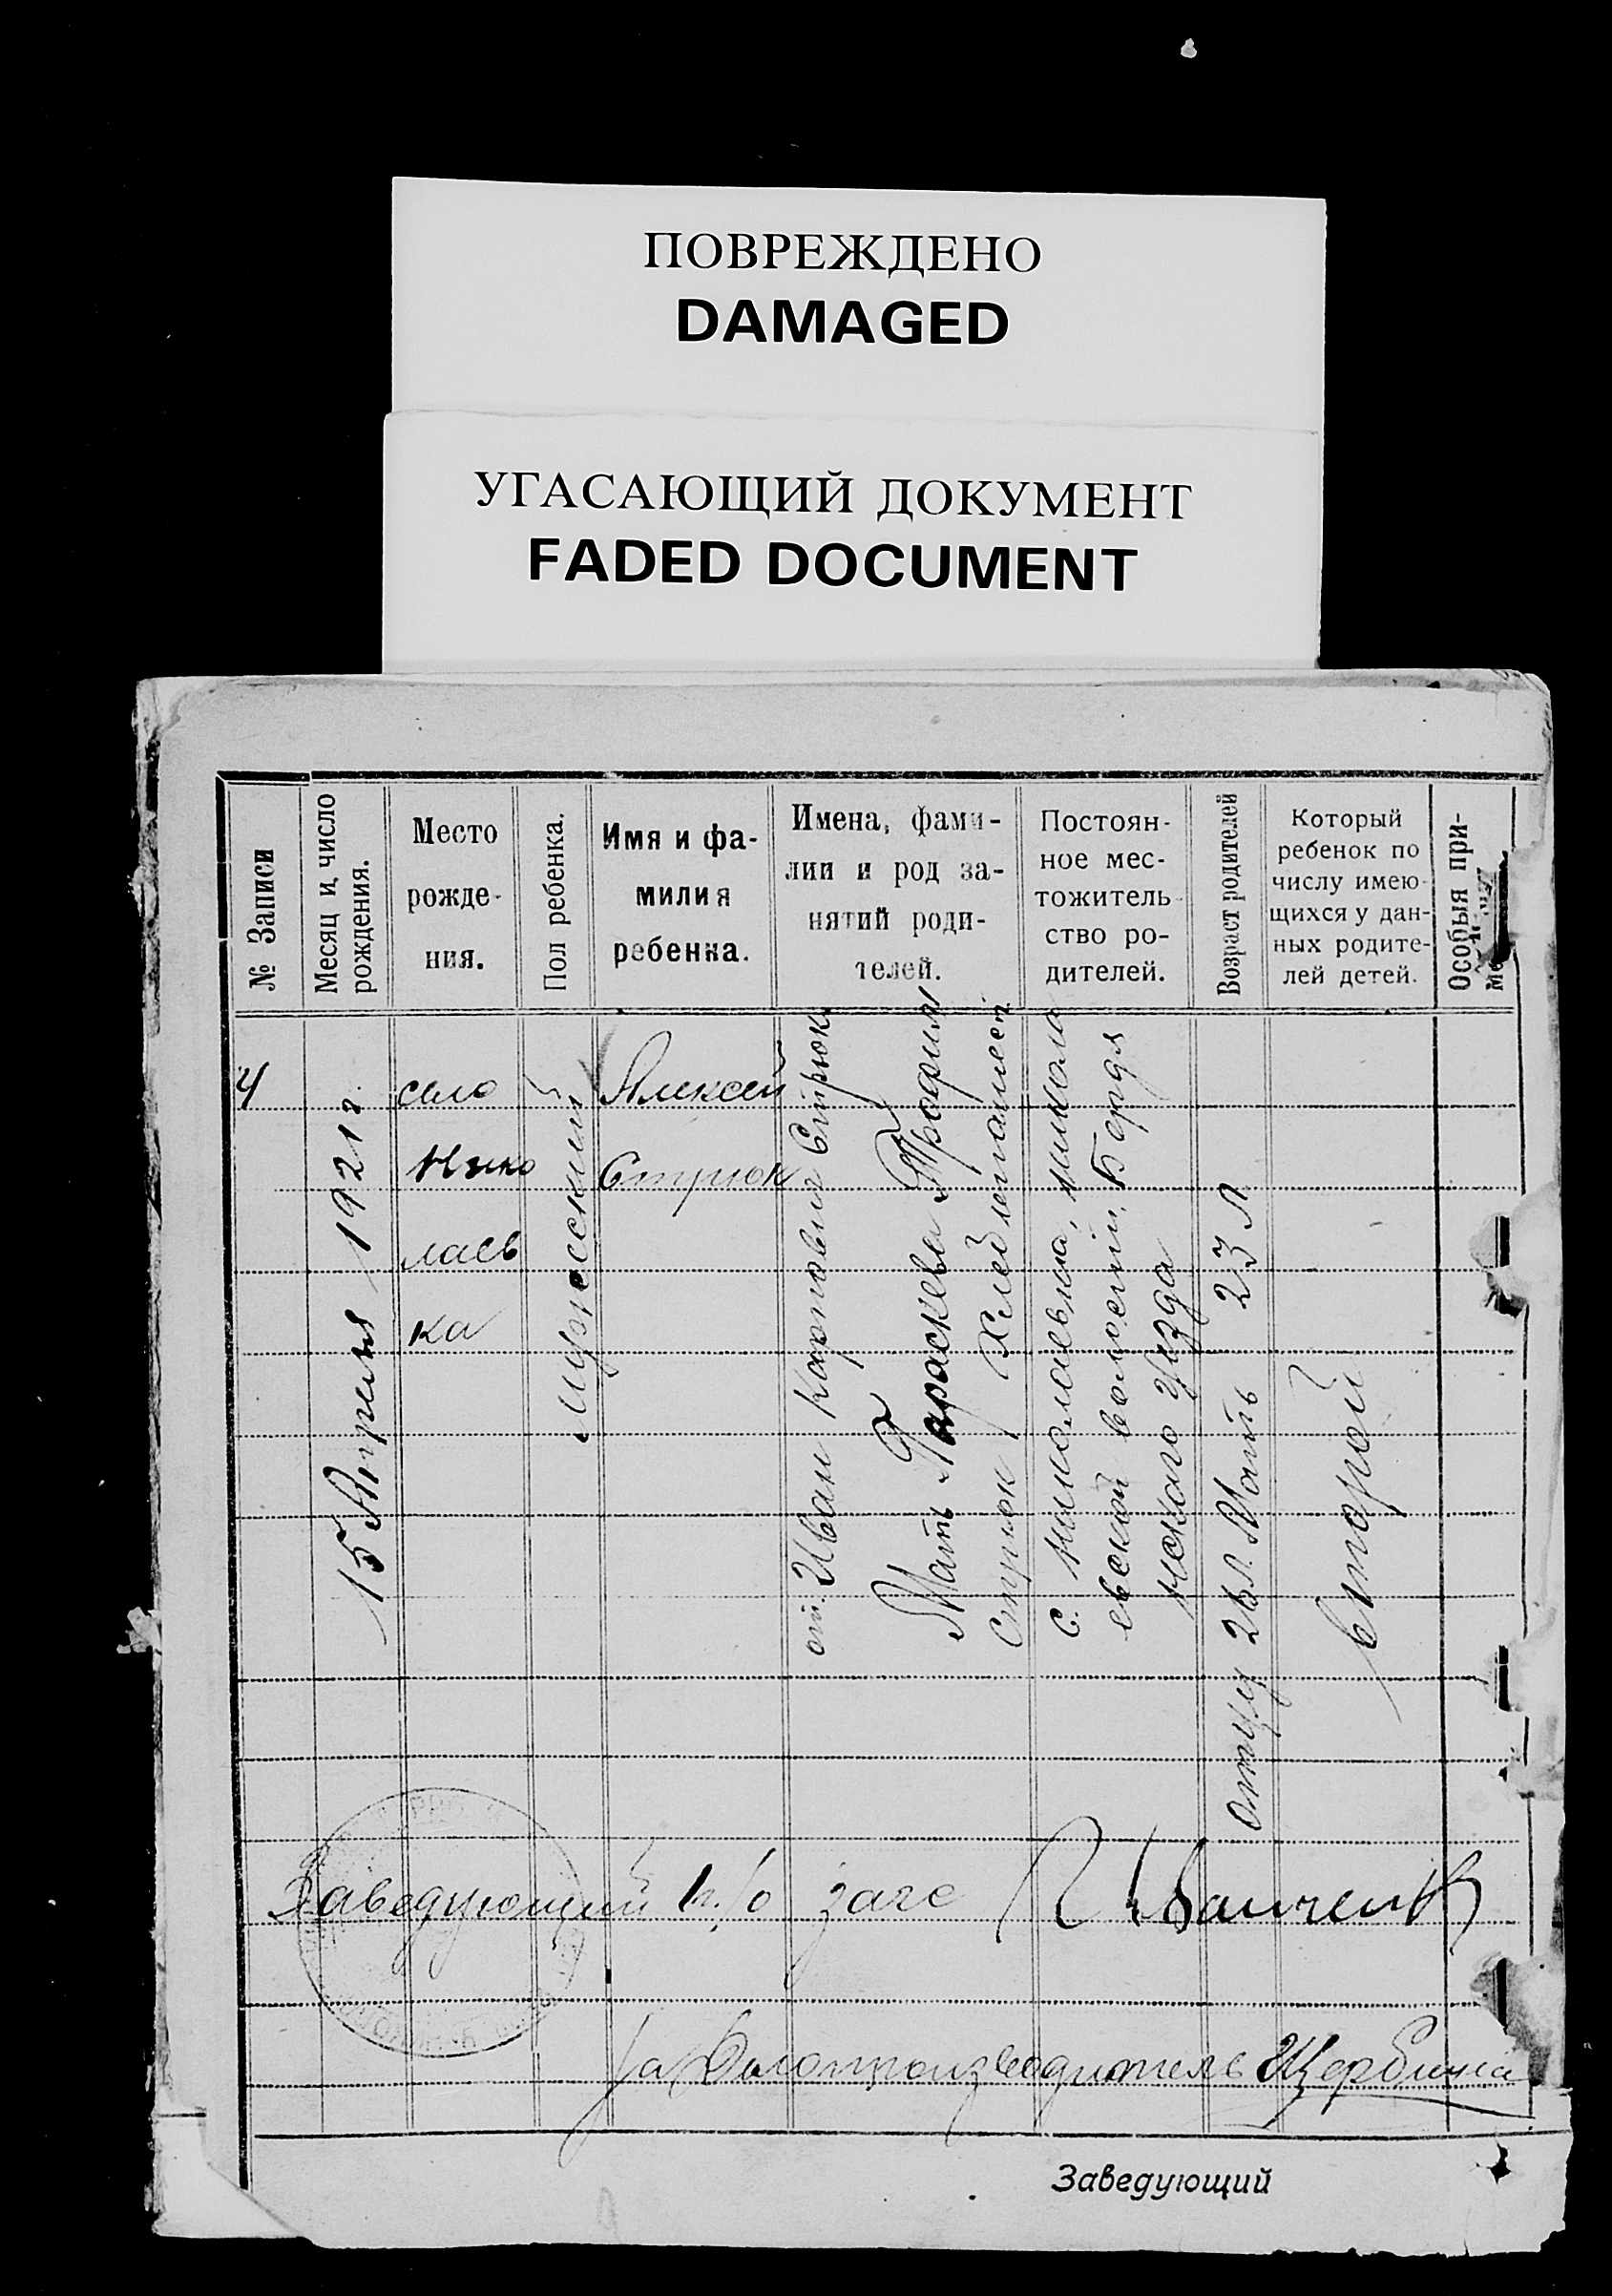 ПОВРЕЖДЕНО
DAMAGED
УГАСАЮЩИЙ ДОКУМЕНТ
FADED DOCUMENT
№ Записи
Месяц и, число
рождения.
Место
рожде-
ния.
Пол ребенка.
Имя и фа-
милия
ребенка.
Имена, фами-
лии и род за-
нятий роди-
телей.
Постоян-
ное мес-
тожитель-
ство ро-
дителей.
Возраст родителей
Который
ребенок по
числу имею-
щихся у дан-
ных родите-
лей детей.
Особыя при-
4
15 Апреля 1921 г.
село
Нико
лаев
ка
мужеский
Алексей
Стрюк
от. Иван Карпович Стрюк
Мать Параскева Трофим
Стрюк
с. Николаевка, Никола
евской волости, Бердя
нского уезда
отцу Мать 23 л
второй
Заведующий загс
Делопроизводитель Щербина
Заведующий